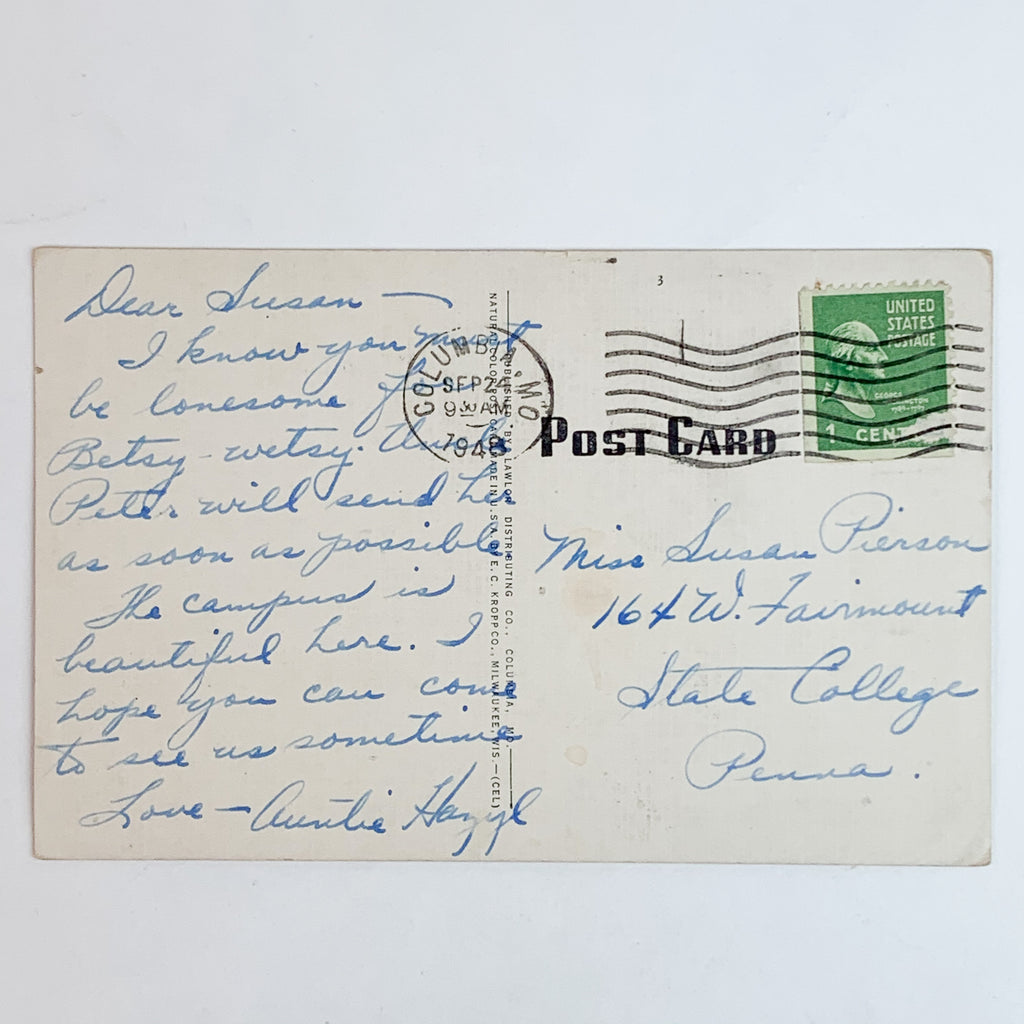 Dear Susan —
I know you must
be lonesome for
Betsy-wetsy.
Peter will send her
as soon as possible
The campus is
beautiful here. I
hope you can come
to see us sometime
Love — Auntie Hazyl
NATURAL COLOR POST CARD MADE IN U.S.A. BY E. C. KROPP CO., MILWAUKEE, WIS.—(CEL)
PUBLISHED BY LAWLOR DISTRIBUTING CO., COLUMBIA, MO.
COLUMBIA, MO
SEP 24
9 30 AM
POST CARD
3
UNITED
STATES
POSTAGE
GEORGE
WASHINGTON
1 CENT
Miss Susan Pierson
164 W. Fairmount
State College
Penna.